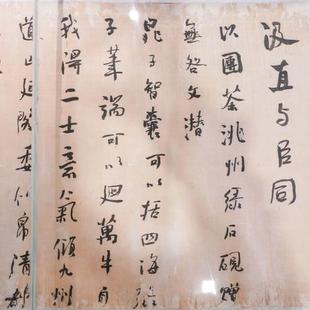 汲直与臣同
以團茶洮州綠石硯贈
無咎文潛
晁子智囊可以括四海張
子筆端可以迴萬牛自
我得二士意氣傾九州
道山延閣委竹帛清都